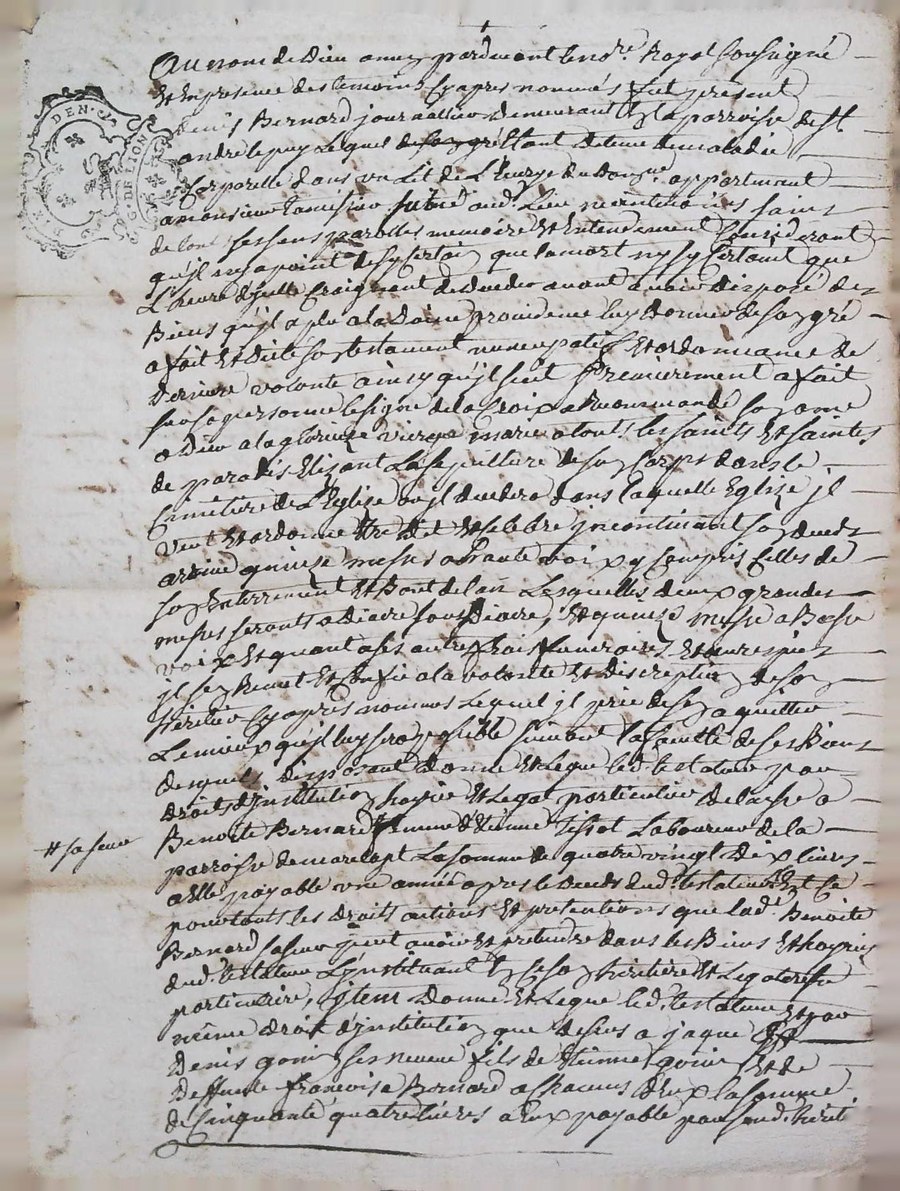 Au nom de Dieu amen pardevant le no.re Royal soussigné
Et en presence des temoins cy apres nommés fut present
denis Bernard journallier demeurant en la parroisse de st
andre le puy lequel de son gré Etant detenu de maladie
Corporelle dans un Lit de L'Ecurye du Dom.ne appartenant
a monsieur aud. Lieu neantmoins sains
de tout ses sens parolles memoire Et Entendement Considerant
qu'il n'y a point de sy Certain que la mort ny sy Certaine que
L'heure d'jcelle Craignant de deceder avant d'avoir disposé des
Biens qu'jl a plu a la Divine providence luy donner de son gré
a fait Et Dicté son testament nuncupatif Et ordonnance de
derniere volonté ainsy qu'jl suit premierement a fait
sur sa personne le signe de la Croix a Recommandé son ame
a Dieu a la glorieuse vierge marie a tout les saints Et saintes
de paradis Elisant La sepulture de son Corps dans le
Cimetiere de L'Eglise ou jl decedera dans laquelle Eglize jl
veut Et ordonne Etre dit Et Celebré jncontinant son deceds
arrivé quinze messes a haute voix y compris Celles de
son Enterrement Et Bout de l'an Lesquelles deux grandes
messes seronts a diacre sous diacre, Et quinze messe a Basse
voix Et quant a ses autre frais funeraires Et œuvres pies
jl s'en Remet Et Confie a la volonté Et discreption de son
Heritier Cy apres nommés Lequel jl prie de s'en aquitter
Le mieux qu'jl luy sera possible suivant la faculté de ses Biens
desquels disposant donne Et Legue led. testateur par
droit d'institution hoyrie Et Legat particulier delaissé a
Benoite Bernard # femme d'Etienne Tissot Laboureur de la
# sa seur
parroisse de marclopt La somme de quatre vingt Dix livres
a Elle payable une année apres le deceds dud. testateur Et Ce
pour touts les droits actions Et pretentions que lad.e Benoite
Bernard sa seur peut avoir Et pretendre dans les Biens Et hoyries
dud. testateur L'jnstituant En Ce son heritiere Et Legataire
particuliere, jtem donne Et Legue led. testateur Et par
même droit d'jnstitution que dessus a jaque Et
Denis gonin ses neveux fils de Etienne gonin Et de
Deffunte francoise Bernard a Chacuns d'Eux la somme
de Cinquante quatre livres a Eux payable par sond. heriti
DEN.
G. DE LION